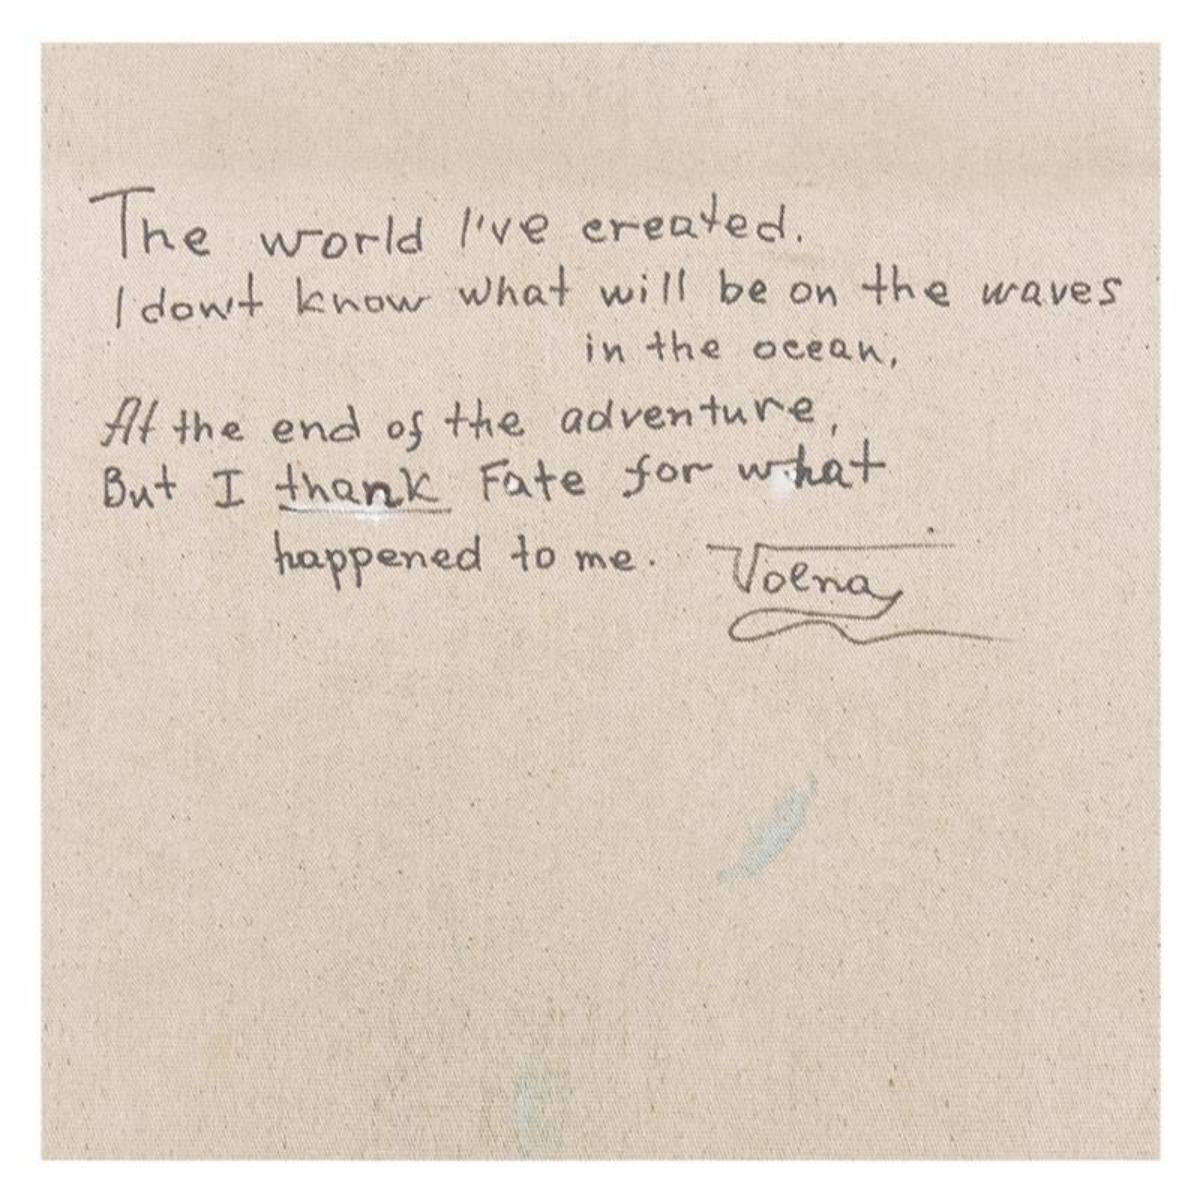 The world I've created.
I don't know what will be on the waves
in the ocean,
At the end of the adventure,
But I thank Fate for what
happened to me. Volna